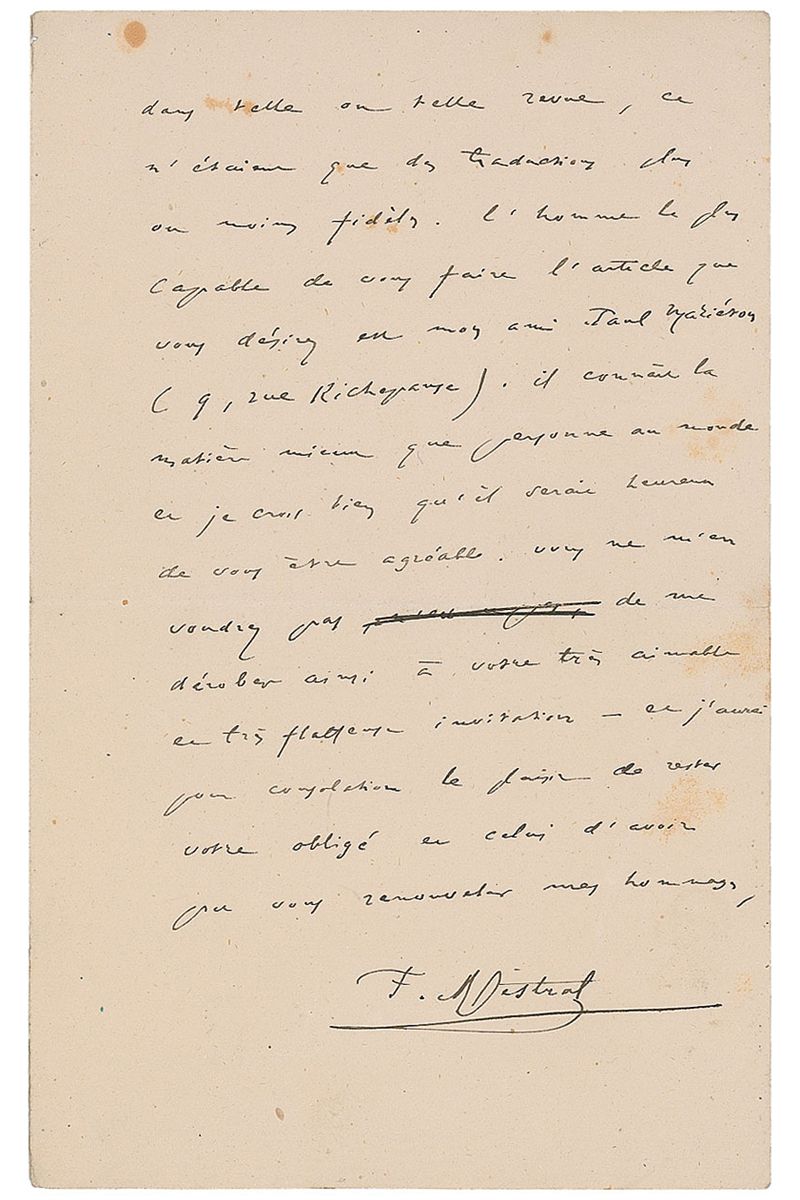 dans telle ou telle revue, ce
n'étaient que des traductions plus
ou moins fidèles. l'homme le plus
capable de vous faire l'article que
vous désirez est mon ami Paul Mariéton
(9, rue Richepanse). il connait la
matière mieux que personne au monde
et je crois bien qu'il serait heureux
de vous être agréable. vous ne m'en
voudrez pas de me
dérober ainsi à votre très aimable
et très flatteuse invitation — et j'aurai
pour consolation le plaisir de rester
votre obligé et celui d'avoir
pu vous renouveler mes hommages,
F. Mistral